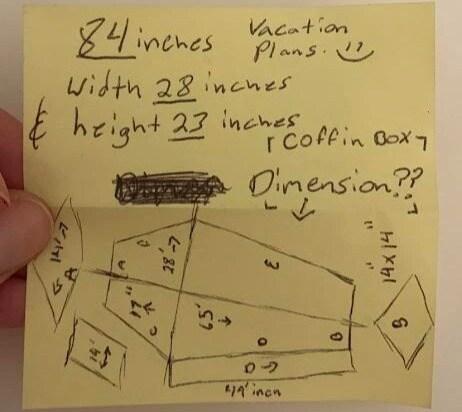 84 inches
Vacation
Plans.
Width 28 inches
& height 23 inches
Coffin Box
Dimension??
14'
A
14'
A
C
28'
17"
C
65'
E
D
B
D
49' inch
"14x14"
B